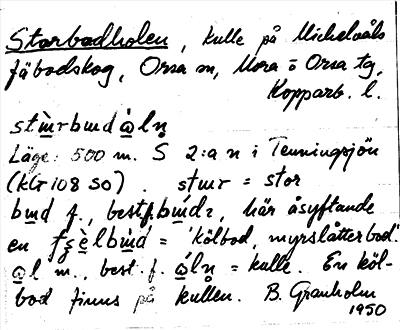 Storbodholen, kulle på Michelvåls
fäbodskog, Orsa sn, Mora o Orsa tg,
Kopparb. l.
Läge: 500 m. S 2:a n i Tenningsjön
(KG 108 SO). stɯr = stor
bɯd f., best.f. här åsyftande
en = 'kölbod, myrslåtterbod'.
ọl m., best. f. = kulle. En köl-
bod finns på kullen. B. Granholm
1950